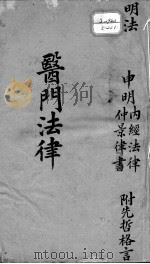 明法
申明
內經法律
仲景律書
附先哲格言
醫門法律
mtoou.info
mtoou.info